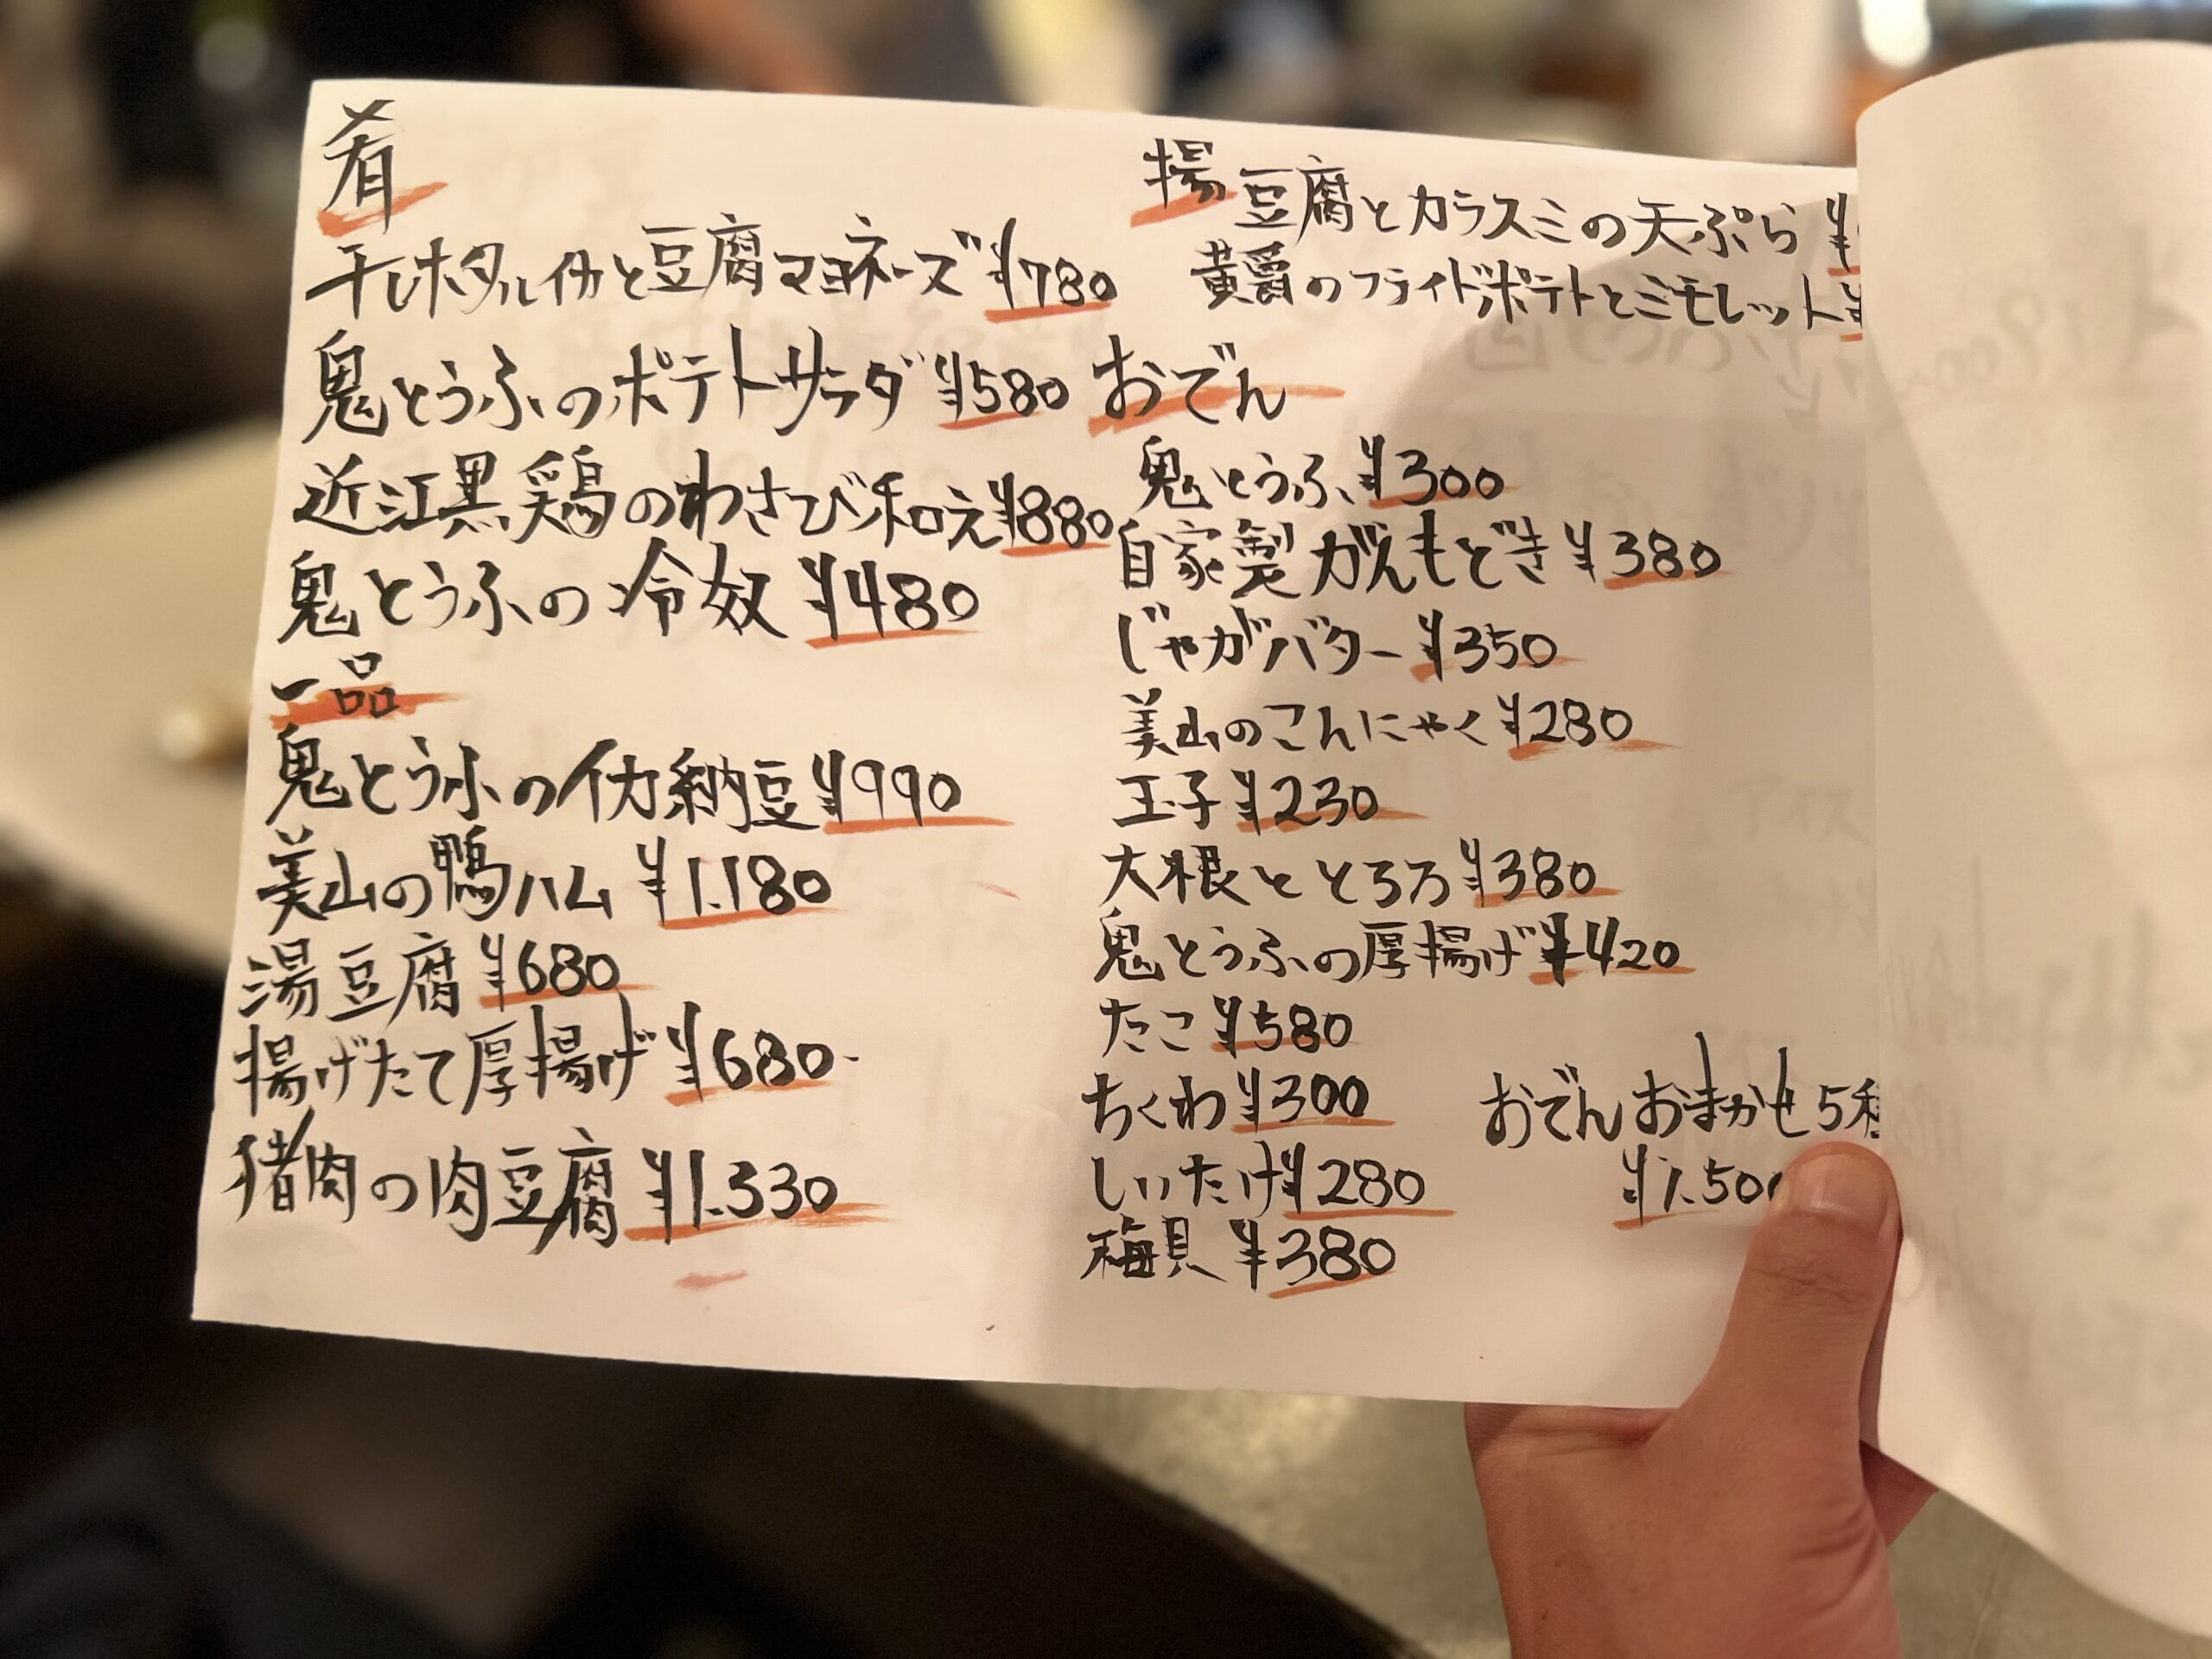 肴
干しホタルイカと豆腐マヨネーズ ¥780
鬼とうふのポテトサラダ ¥580
近江黒鶏のわさび和え ¥880
鬼とうふの冷奴 ¥480
一品
鬼とうふのイカ納豆 ¥990
美山の鴨ハム ¥1.180
湯豆腐 ¥680
揚げたて厚揚げ ¥680-
猪肉の肉豆腐 ¥1.330
揚
豆腐とカラスミの天ぷら ¥
黄爵のフライドポテトとミモレット ¥
おでん
鬼とうふ ¥300
自家製がんもどき ¥380
じゃがバター ¥350
美山のこんにゃく ¥280
玉子 ¥230
大根ととろろ ¥380
鬼とうふの厚揚げ ¥420
たこ ¥580
ちくわ ¥300
しいたけ ¥280
梅貝 ¥380
おでんおまかせ5種
¥1.500